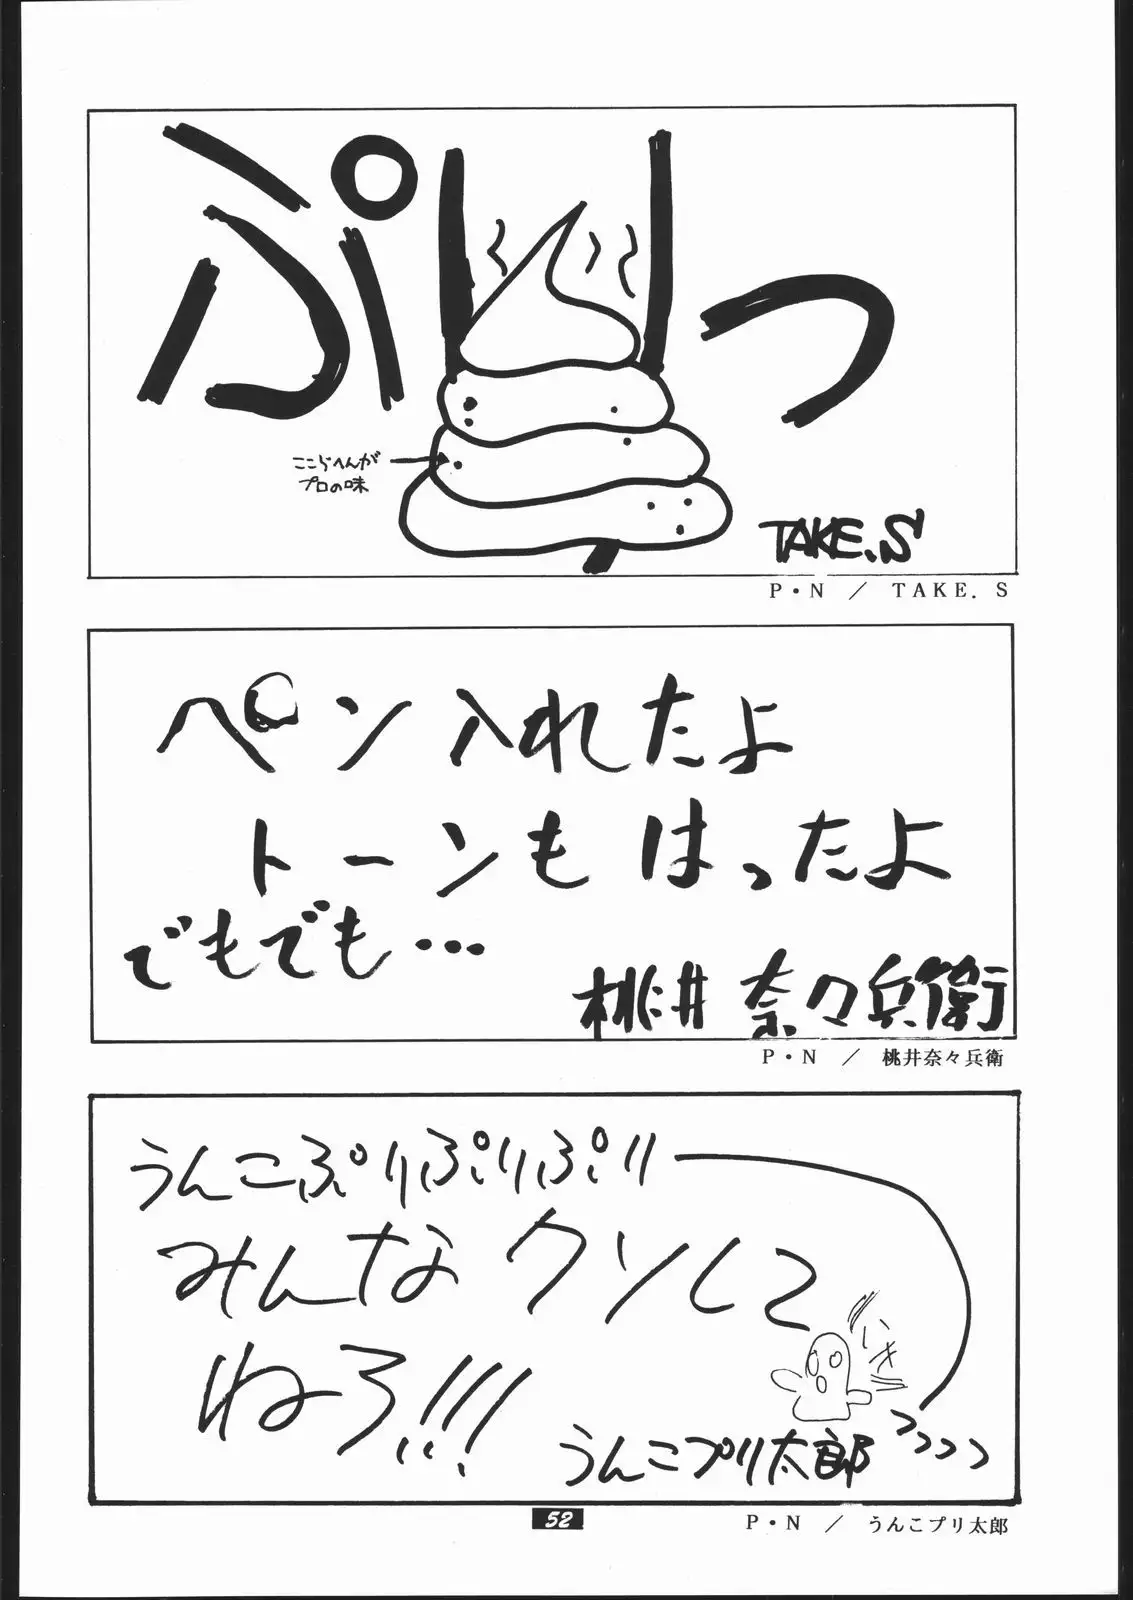 ぷりっ
ここらへんが
プロの味
TAKE.S
P・N ／ TAKE. S
ペン入れたよ
トーンもはったよ
でもでも…
桃井奈々兵衛
P・N ／ 桃井奈々兵衛
うんこぷりぷりぷり
みんなクソして
ねろ!!!
いき
うんこプリ太郎
つつつつつ
52
P・N ／ うんこプリ太郎